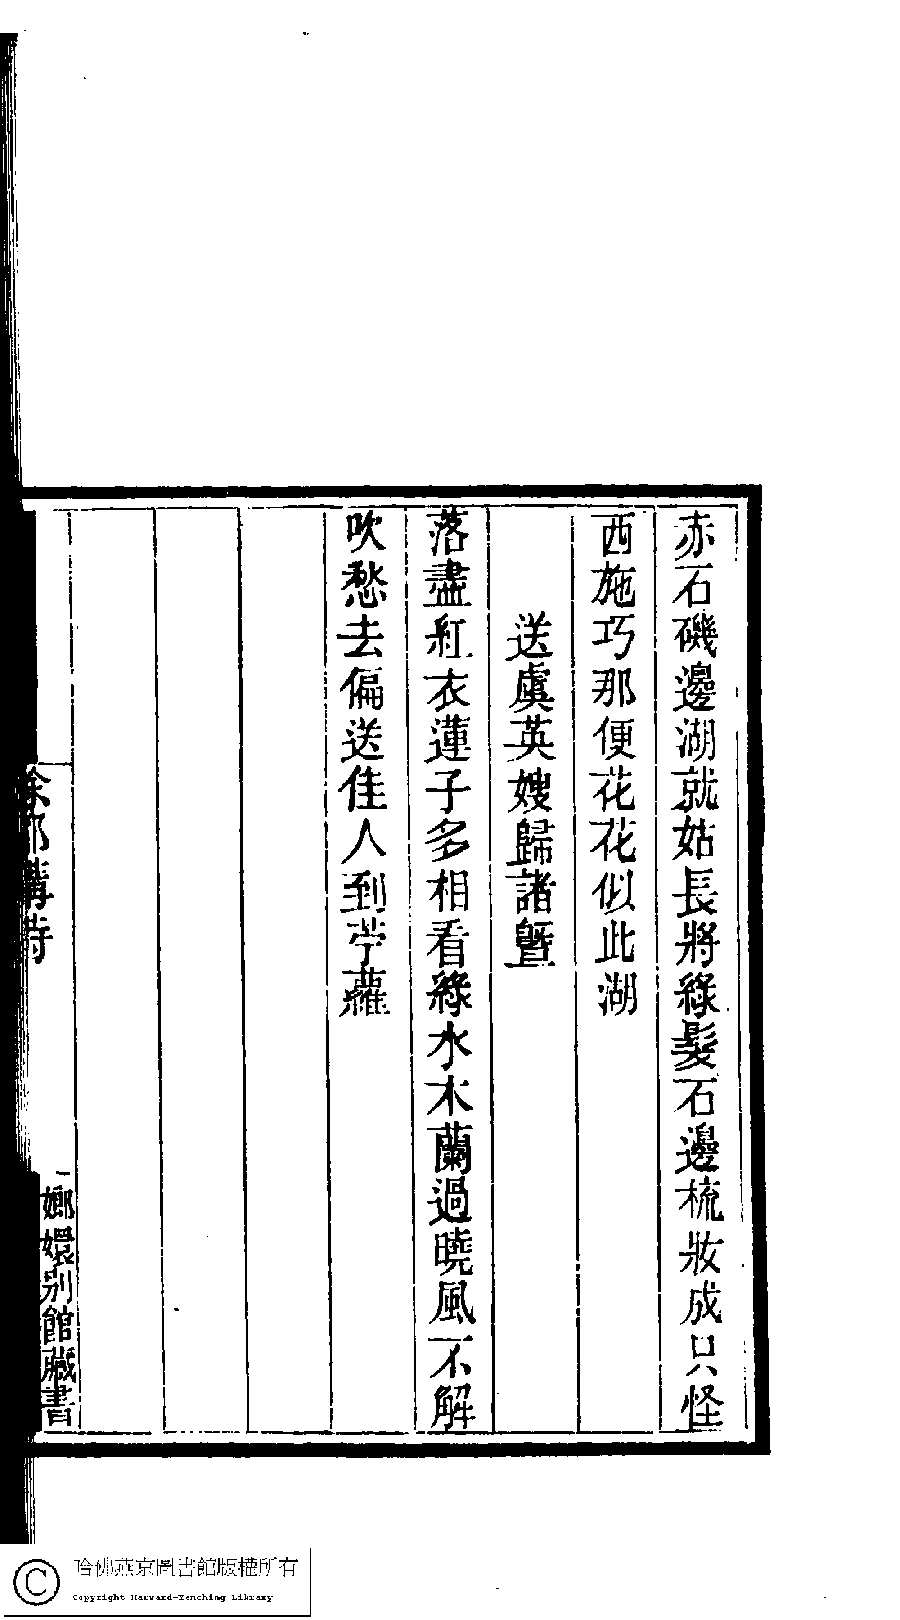 赤石磯邊湖就姑長將綠髮石邊梳妝成只怪
西施巧那便花花似此湖
送虞英嫂歸諸曁
落盡紅衣蓮子多相看綠水木蘭過曉風不解
吹愁去偏送佳人到苧蘿
嫏嬛別館藏書
哈佛燕京圖書館版權所有
Copyright Harvard-Yenching Library